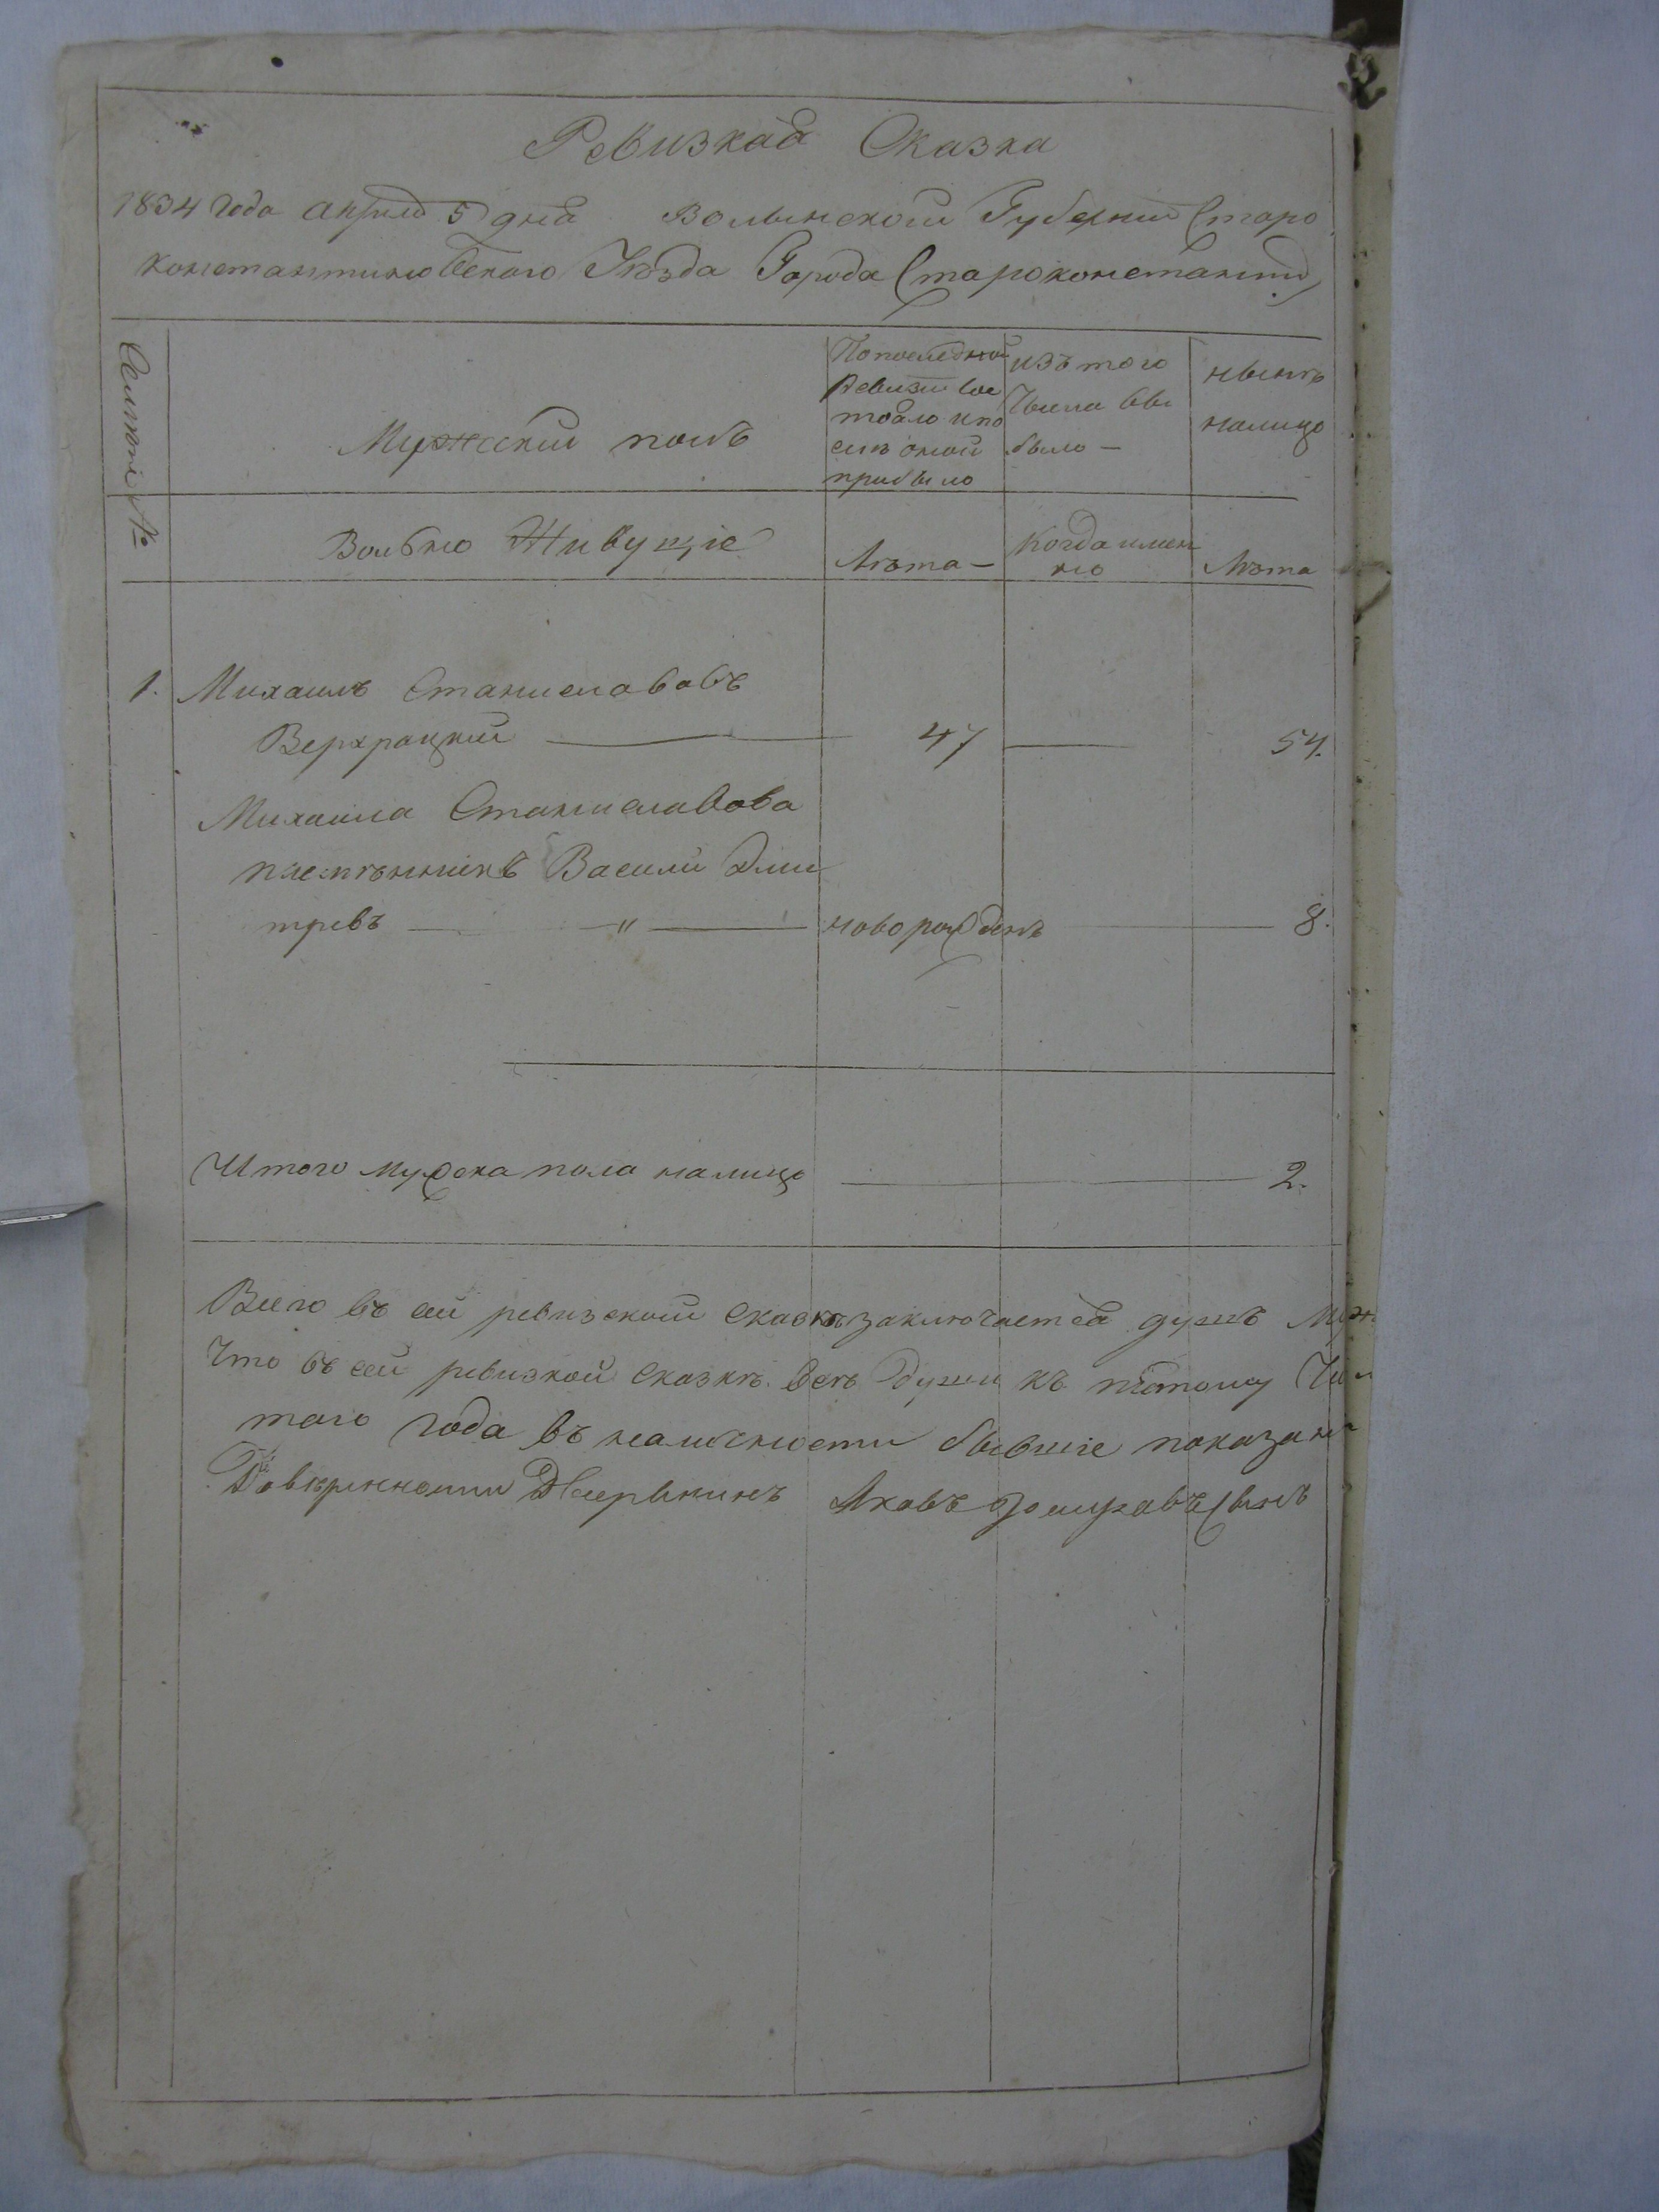 Ревизкая Сказка
1834 года апреля 5 дня Волынской Губернии Старо
константиновского Уезда Города Староконстантин
Семьи №
Мужеский полъ
По последной
Ревизии сос
тояло и по
сле оной
прибыло
изъ того
Числа вы
было —
нынѣ
налицо
Вольно Живущіе
Лѣта —
Когда имен
но
Лѣта
1. Михаилъ Станиславовъ
Верхрацкий 47 54.
Михаила Станиславова
племѣнникъ Васили Дми
тревъ — " — новорожденъ 8.
Итого мужска пола налицо 2.
Всего въ сей ревизской сказкѣ заключается душъ Муж
Что въ сей ревизкой сказкѣ всѣ души къ пятому Чи
того года въ наличности бывшіе показани
Яковъ сынъ